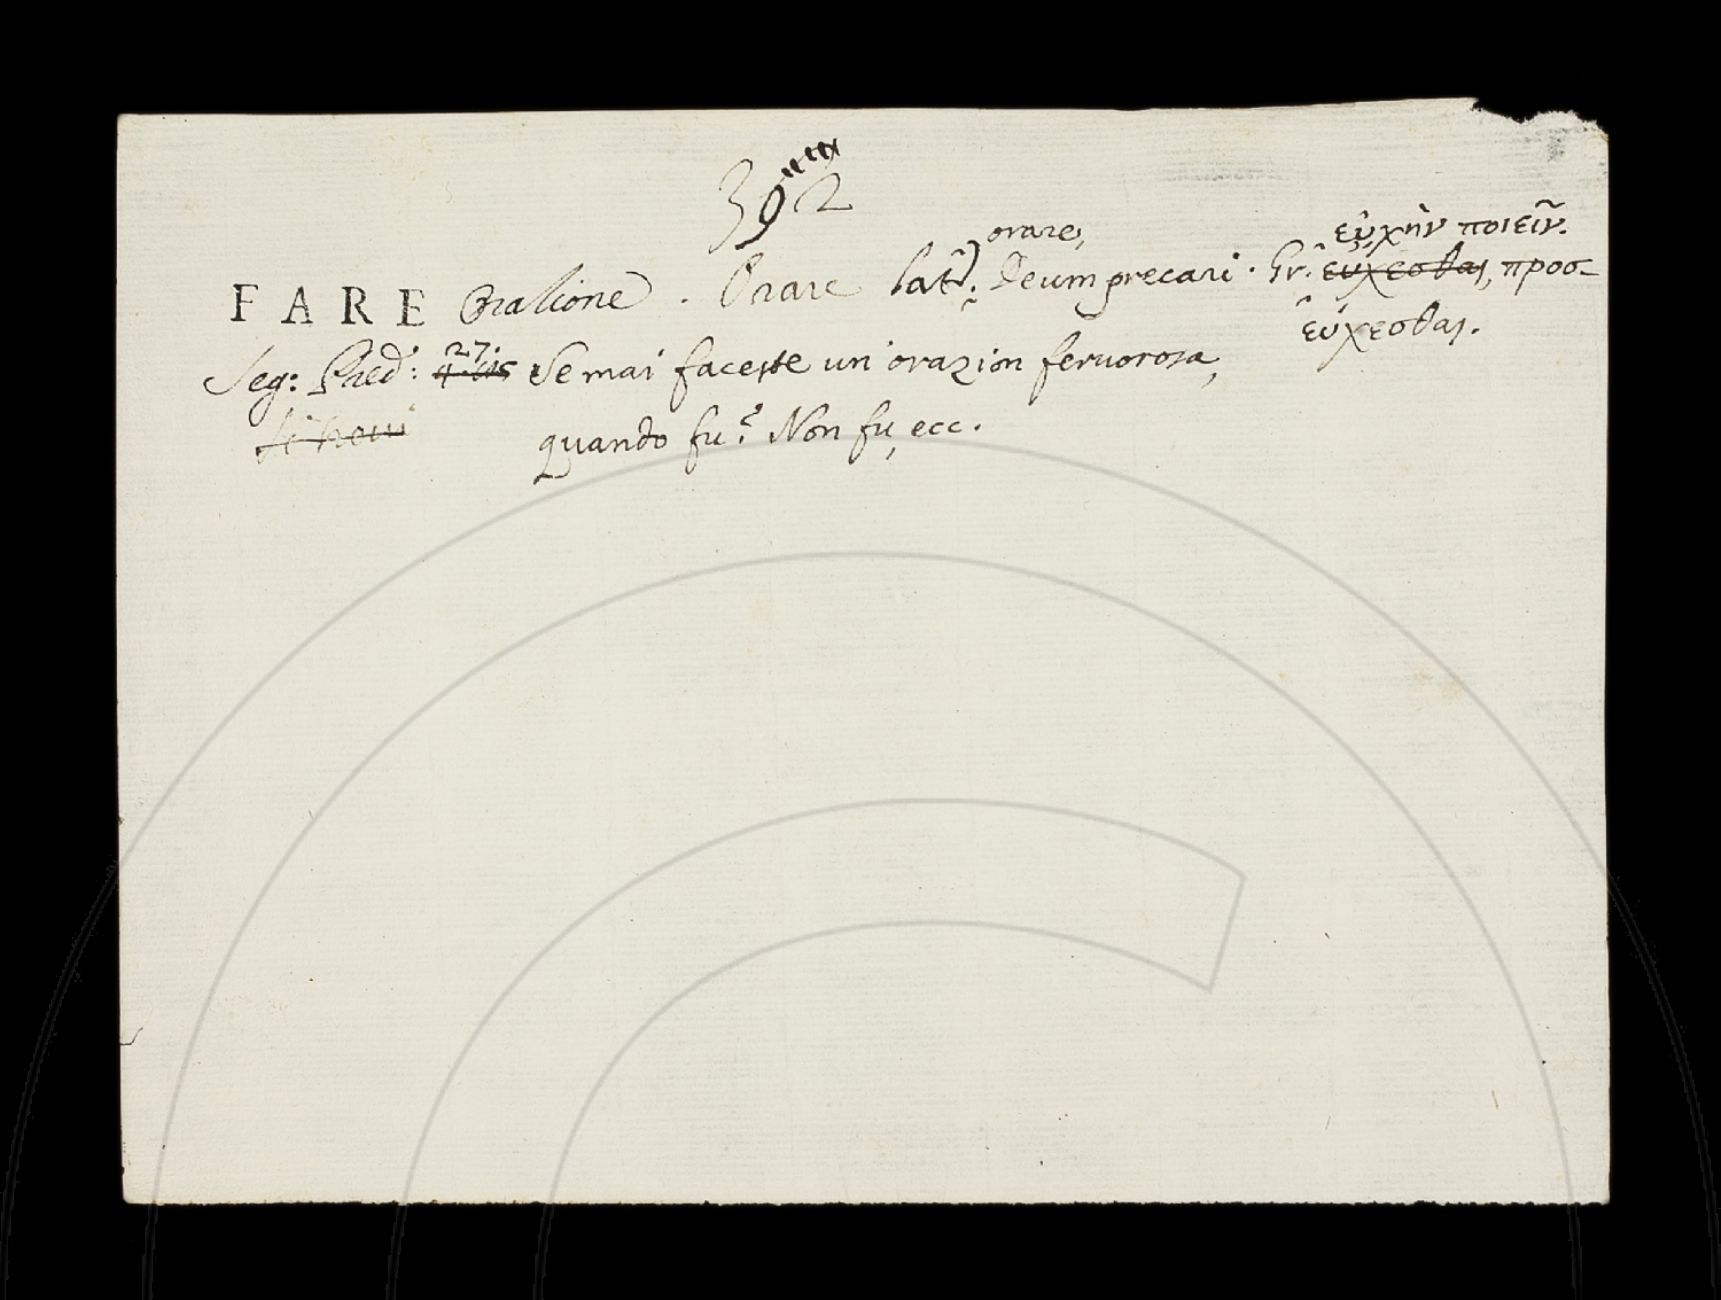 392
orare, εὐχὴν ποιεῖν.
FARE Orazione. Orare Lat. Deum precari. Gr. εὔχεσθαι, προσ-
εύχεσθαι.
27.
Seg: Pred: Se mai faceste un' orazion fervorosa,
quando fu? Non fu, ecc.